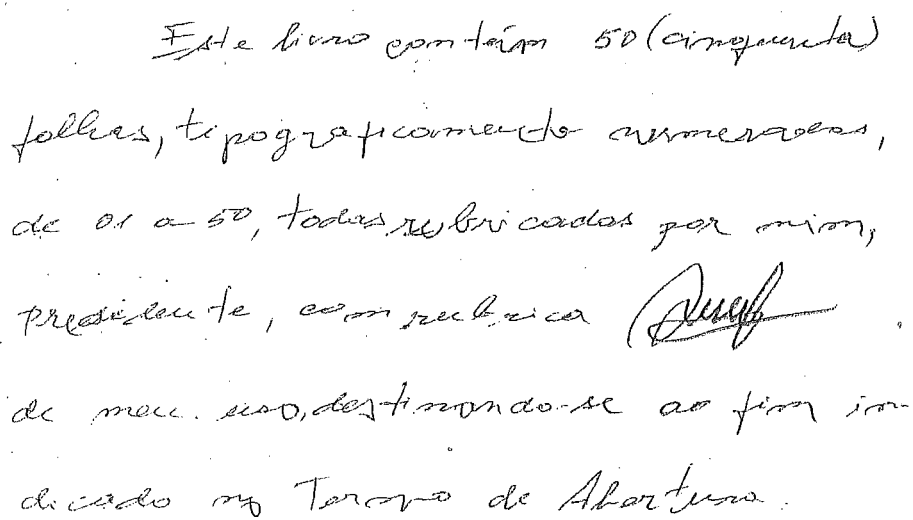 Este livro contém 50 (cinquenta)
folhas, tipograficamente numeradas,
de 01 a 50, todas rubricadas por mim,
presidente, com rubrica
de meu uso, destinando-se ao fim in-
dicado no Termo de Abertura.